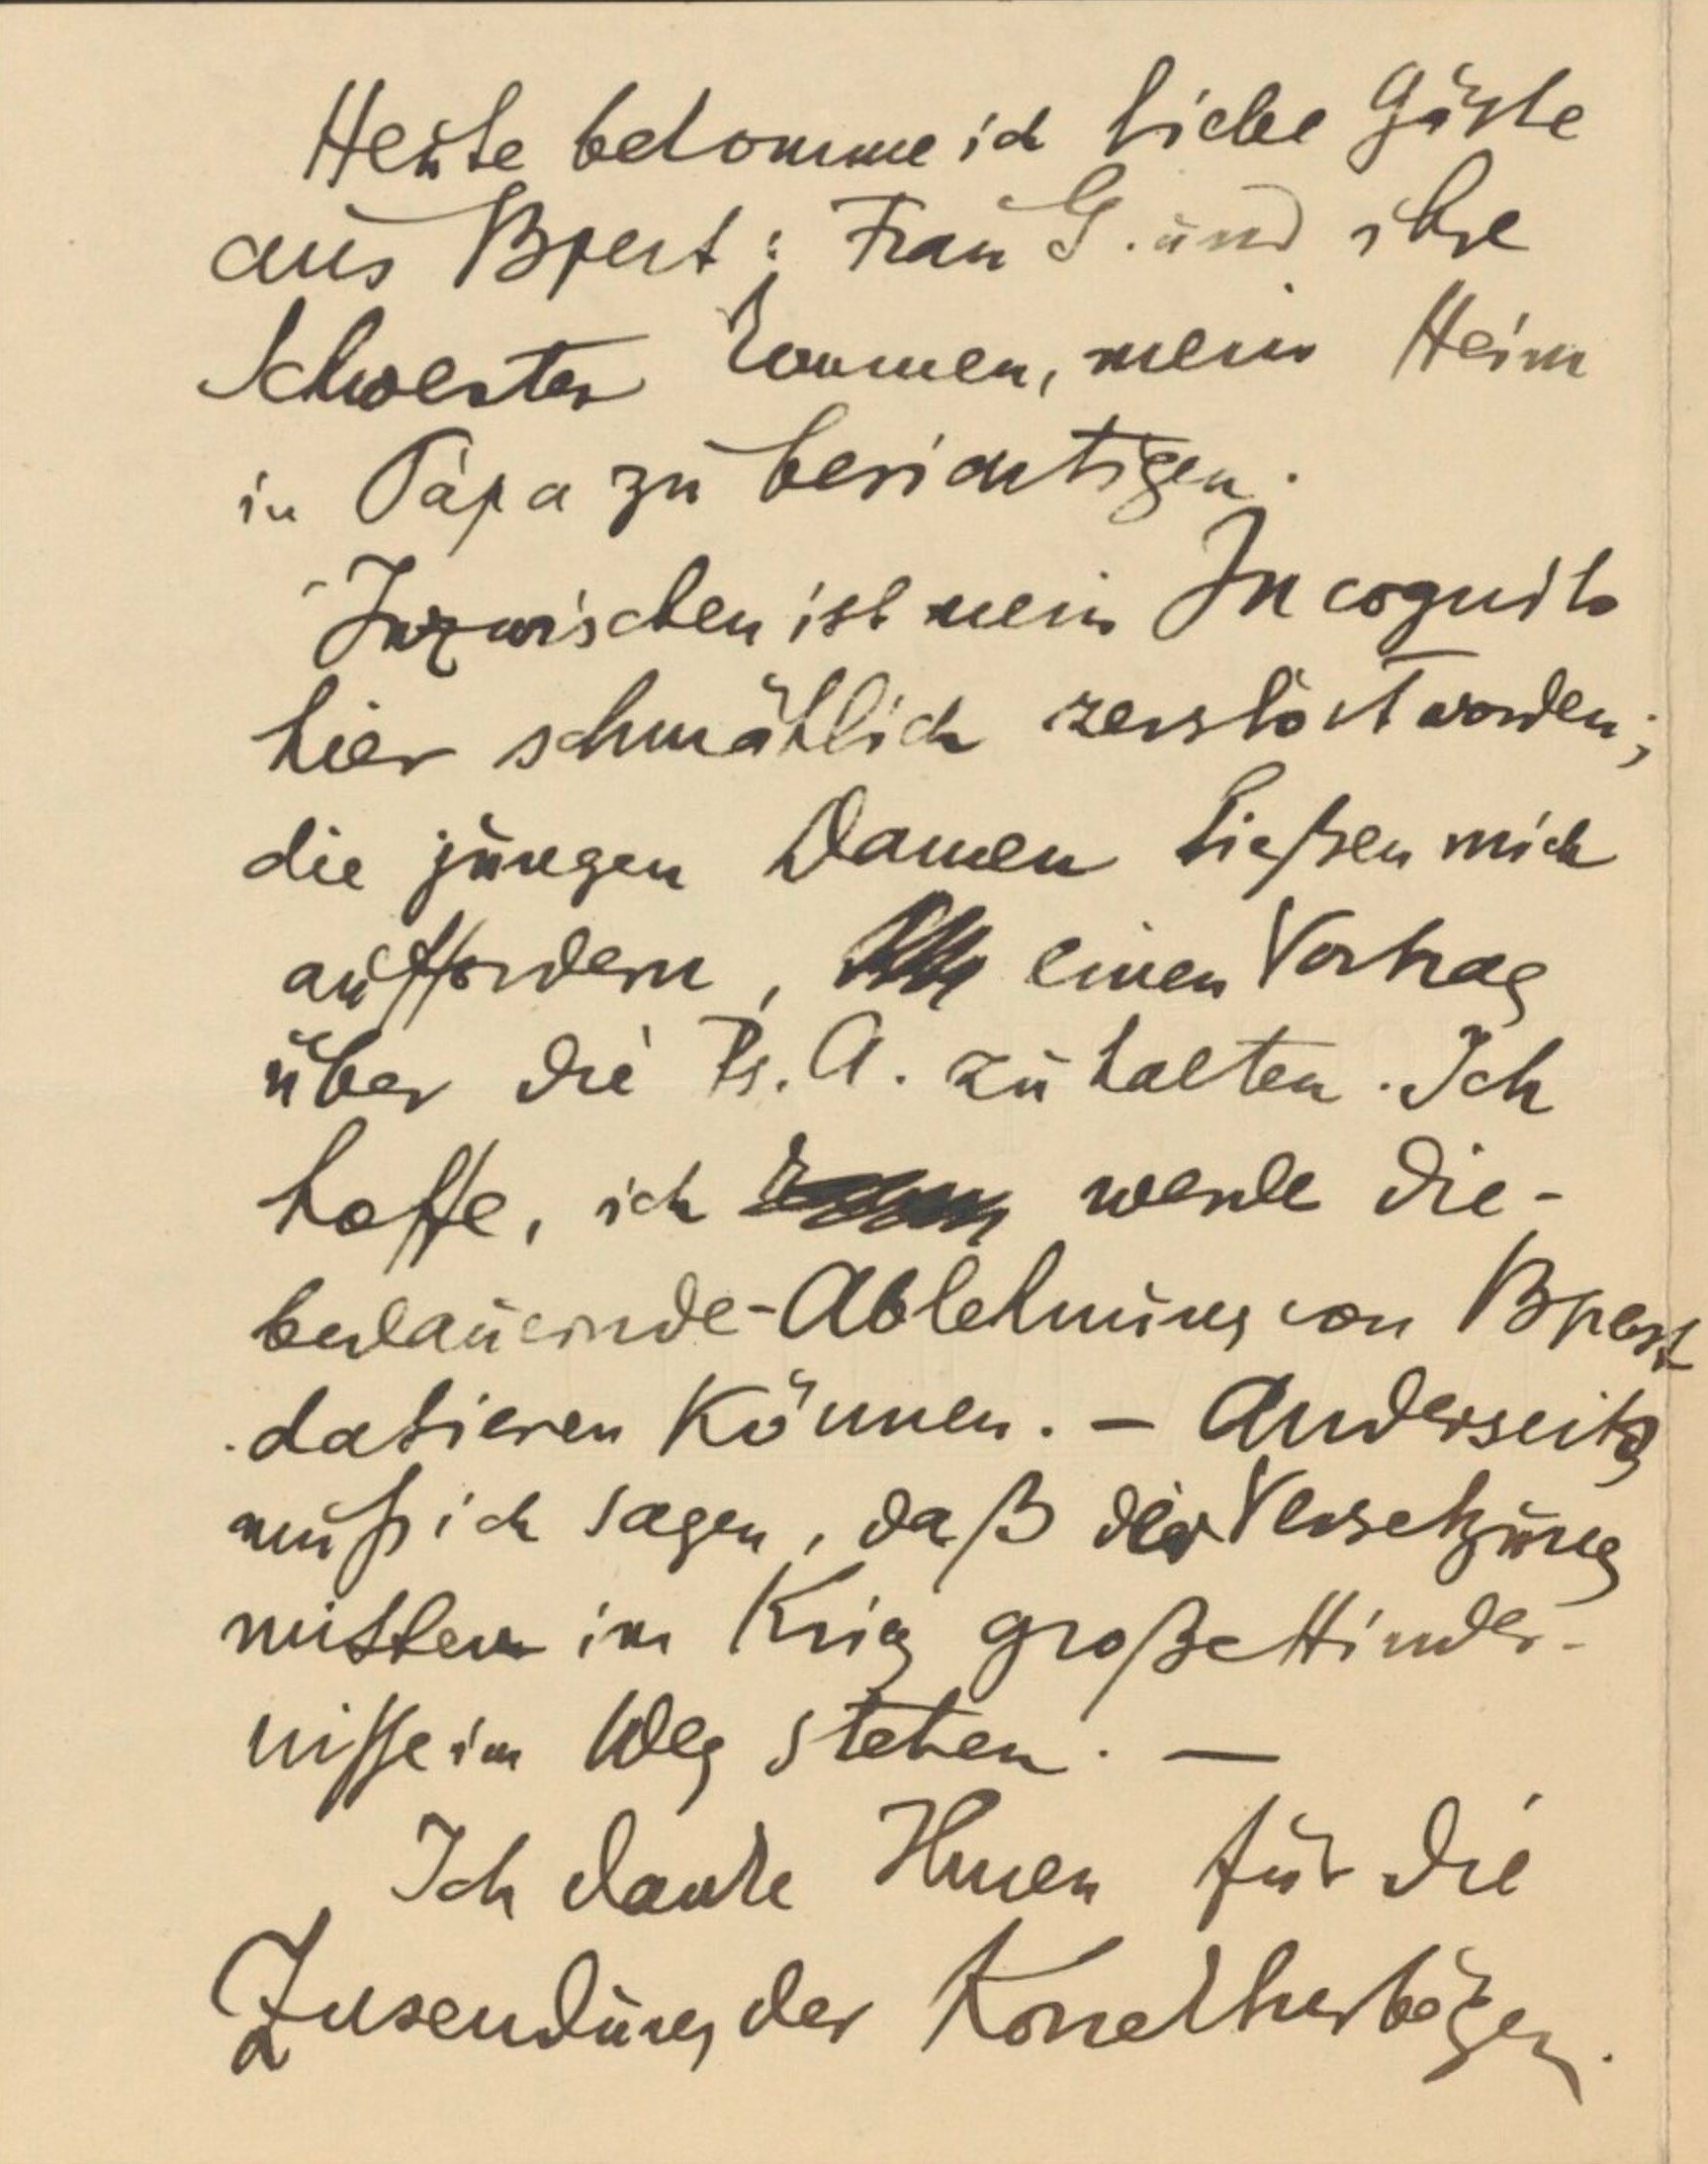 Heute bekomme ich liebe Gäste
aus Bpest: Frau G. und ihre
Schwester kommen, mein Heim
in Pápa zu besichtigen.
Inzwischen ist mein Incognito
hier schmählich zerstört worden;
die jungen Damen ließen mich
auffordern, einen Vortrag
über die Ps. A. zu halten. Ich
hoffe, ich werde die-
bedauernde-Ablehnung von Bpest
datieren können. – Anderseits
muß ich sagen, daß der Versetzung
mitten im Krieg große Hinder-
nisse im Weg stehen. —
Ich danke Ihnen für die
Zusendung der Korrekturbögen.